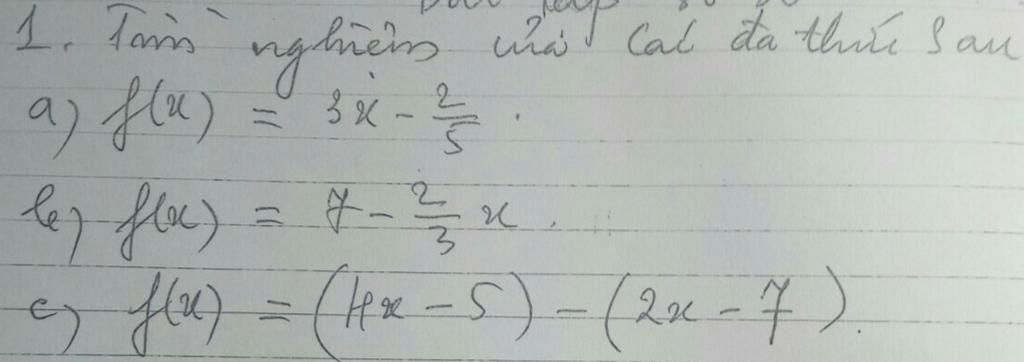 1. Tìm nghiệm của các đa thức sau
a) f(x) = 3x - 2/5.
b) f(x) = 7 - 2/3 x.
c) f(x) = (4x - 5) - (2x - 7).